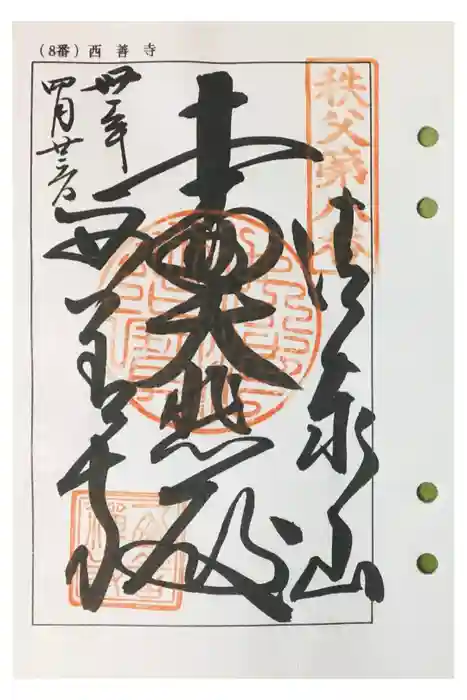 (8番) 西善寺
秩父第八番
清泰山
十一面大悲殿
西善寺
卅一年
四月廿三日